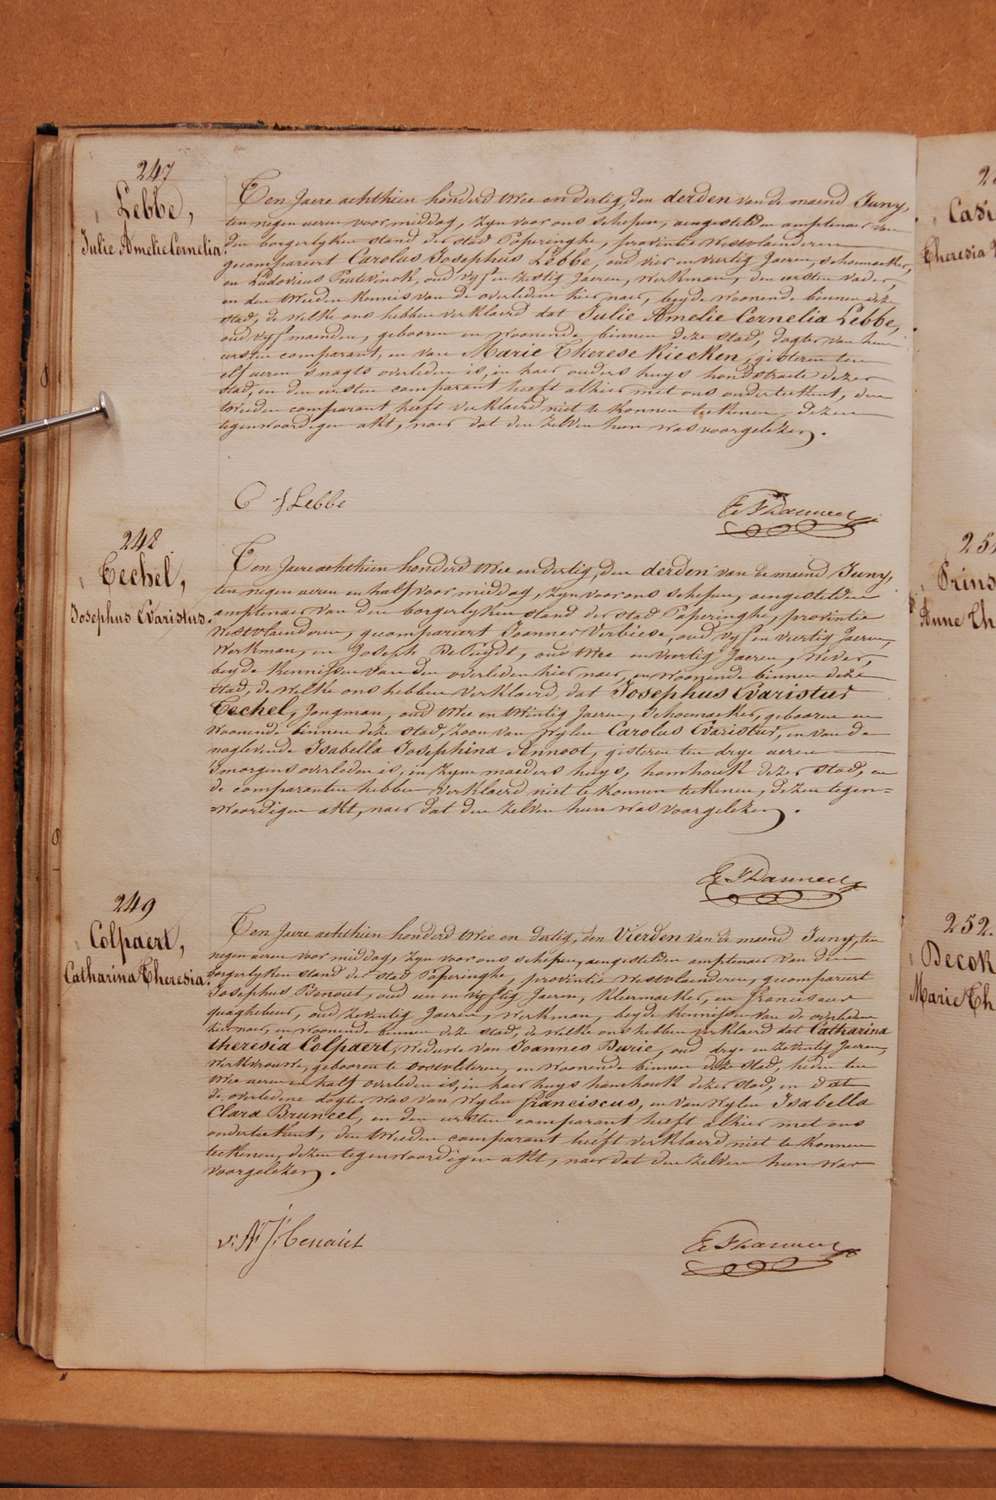 247
Lebbe,
Julie Amelie Cornelia
Ten Jaere achthien honderd twee en dertig, den derden van de maend Juny,
ten negen ueren voormiddag, zyn voor ons schepen, aengestelden amptenaer van
den borgerlyken stand der stad Poperinghe, provintie Westvlaenderen
gecompareert Carolus Josephus Lebbe, oud vier en veertig Jaeren, schoemaeker,
en Ludovicus oud vyf en zestig Jaeren, werkman, den eersten vader,
en den tweeden kennis van de overledene hier naer, beyde woonende binnen deze
stad, de welke ons hebben verklaerd dat Julie Amelie Cornelia Lebbe,
oud vyf maenden, gebooren en woonende binnen deze stad, dogter van den
eersten comparant, en van Marie Therese Kiecken, gisteren ten
elf ueren s'nagts overleden is, in haer ouders huys hondstraete dezer
stad, en den eersten comparant heeft alhier met ons onderteekent, den
tweeden comparant heeft verklaerd niet te konnen teekenen, dezen
tegenwoordigen akt, naer dat den zelven hun was voorgelezen.
C J Lebbe
248
Techel,
Josephus Evaristus.
Ten Jaere achthien honderd twee en dertig, den derden van de maend Juny,
ten negen ueren en half voormiddag, zyn voor ons schepen, aengestelden
amptenaer van den borgerlyken stand der stad Poperinghe, provintie
Westvlaenderen, gecompareert Joannes Verbiese, oud vyf en veertig Jaeren,
werkman, en Joseph oud twee en veertig Jaeren, wever,
beyde kennissen van den overleden hier naer, en woonende binnen deze
stad, de welke ons hebben verklaerd, dat Josephus Evaristus
Techel, Jongman, oud twee en twintig Jaeren, schoemaeker, gebooren en
woonende binnen deze stad, zoon van wylen Carolus Evaristus, en van de
naglevende Isabella Josephina Annoot, gisteren ten drye ueren
smorgens overleden is, in zyne moeders huys, homhouck dezer stad, en
de comparanten hebben verklaerd niet te konnen teekenen, dezen tegen=
=woordigen akt, naer dat den zelven hun was voorgelezen.
249
Colpaert,
Catharina Theresia.
Ten Jaere achthien honderd twee en dertig, den Vierden van de maend Juny, ten
negen ueren voor middag, zyn voor ons schepen, aengestelden amptenaer van den
borgerlyken stand der stad Poperinghe, provintie Westvlaenderen, gecompareert
Josephus Benoit, oud een en vyftig Jaeren, kleermaeker, en franciscus
quaghebeur, oud zeventig Jaeren, werkman, beyde kennissen van de overledene
hier naer, en woonende binnen deze stad, de welke ons hebben verklaerd dat Catharina
theresia Colpaert, weduwe van Joannes Durie, oud drye en zeventig Jaeren,
werkvrouwe, gebooren te oostvleteren, en woonende binnen deze stad, heden ten
twee ueren en half overleden is, in haer huys homhouck dezer stad, en dat
de overledene dogter was van wylen franciscus, en van wylen Isabella
Clara Bruneel, en den eersten comparant heeft alhier met ons
onderteekent, den tweeden comparant heeft verklaerd niet te konnen
teekenen, dezen tegenwoordigen akt, naer dat den zelven hun was
voorgelezen.
Casi
Theresia
Prins
Anne Th
252.
Decok
Marie Th